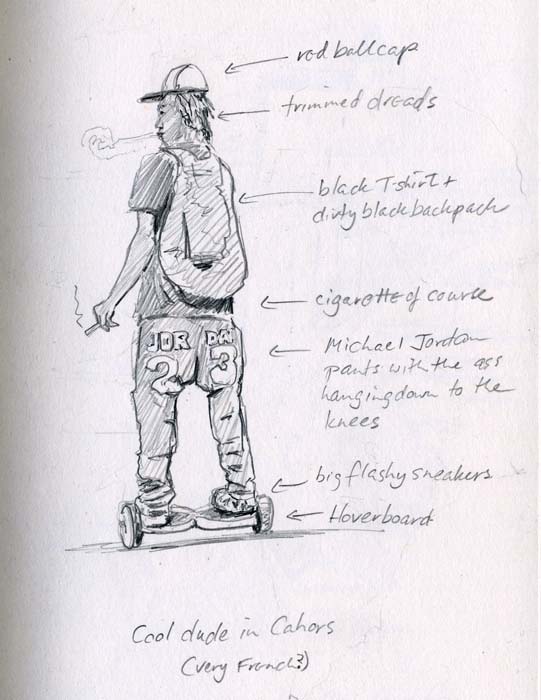 red ballcap
trimmed dreads
black T-shirt +
dirty black backpack
cigarette of course
Michael Jordan
pants with the ass
hanging down to the
knees
JOR DAN
2 3
big flashy sneakers
Hoverboard
Cool dude in Cahors
(very French?)